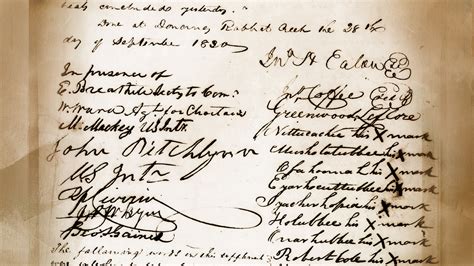 treaty concluded yesterday.
Done at Dancing Rabbit Creek the 28th
day of September 1830
Jno. H. Eaton
In presence of
E. Breathitt Secty to Com:
Jno. Coffee
W. Ward Agt. for Choctaws
Greenwood Leflore
M. Mackey US Intr.
Nittucachee his x mark
John Pitchlynn
Mushulatubbee his x mark
US Intr
Ofahoomah his x mark
Eyarhocuttubbee his x mark
Iyacherhopia his x mark
Holubbee his x mark
Geo. S. Gaines
Onarhubbee his x mark
The following words in this supplement
Robert Cole his x mark